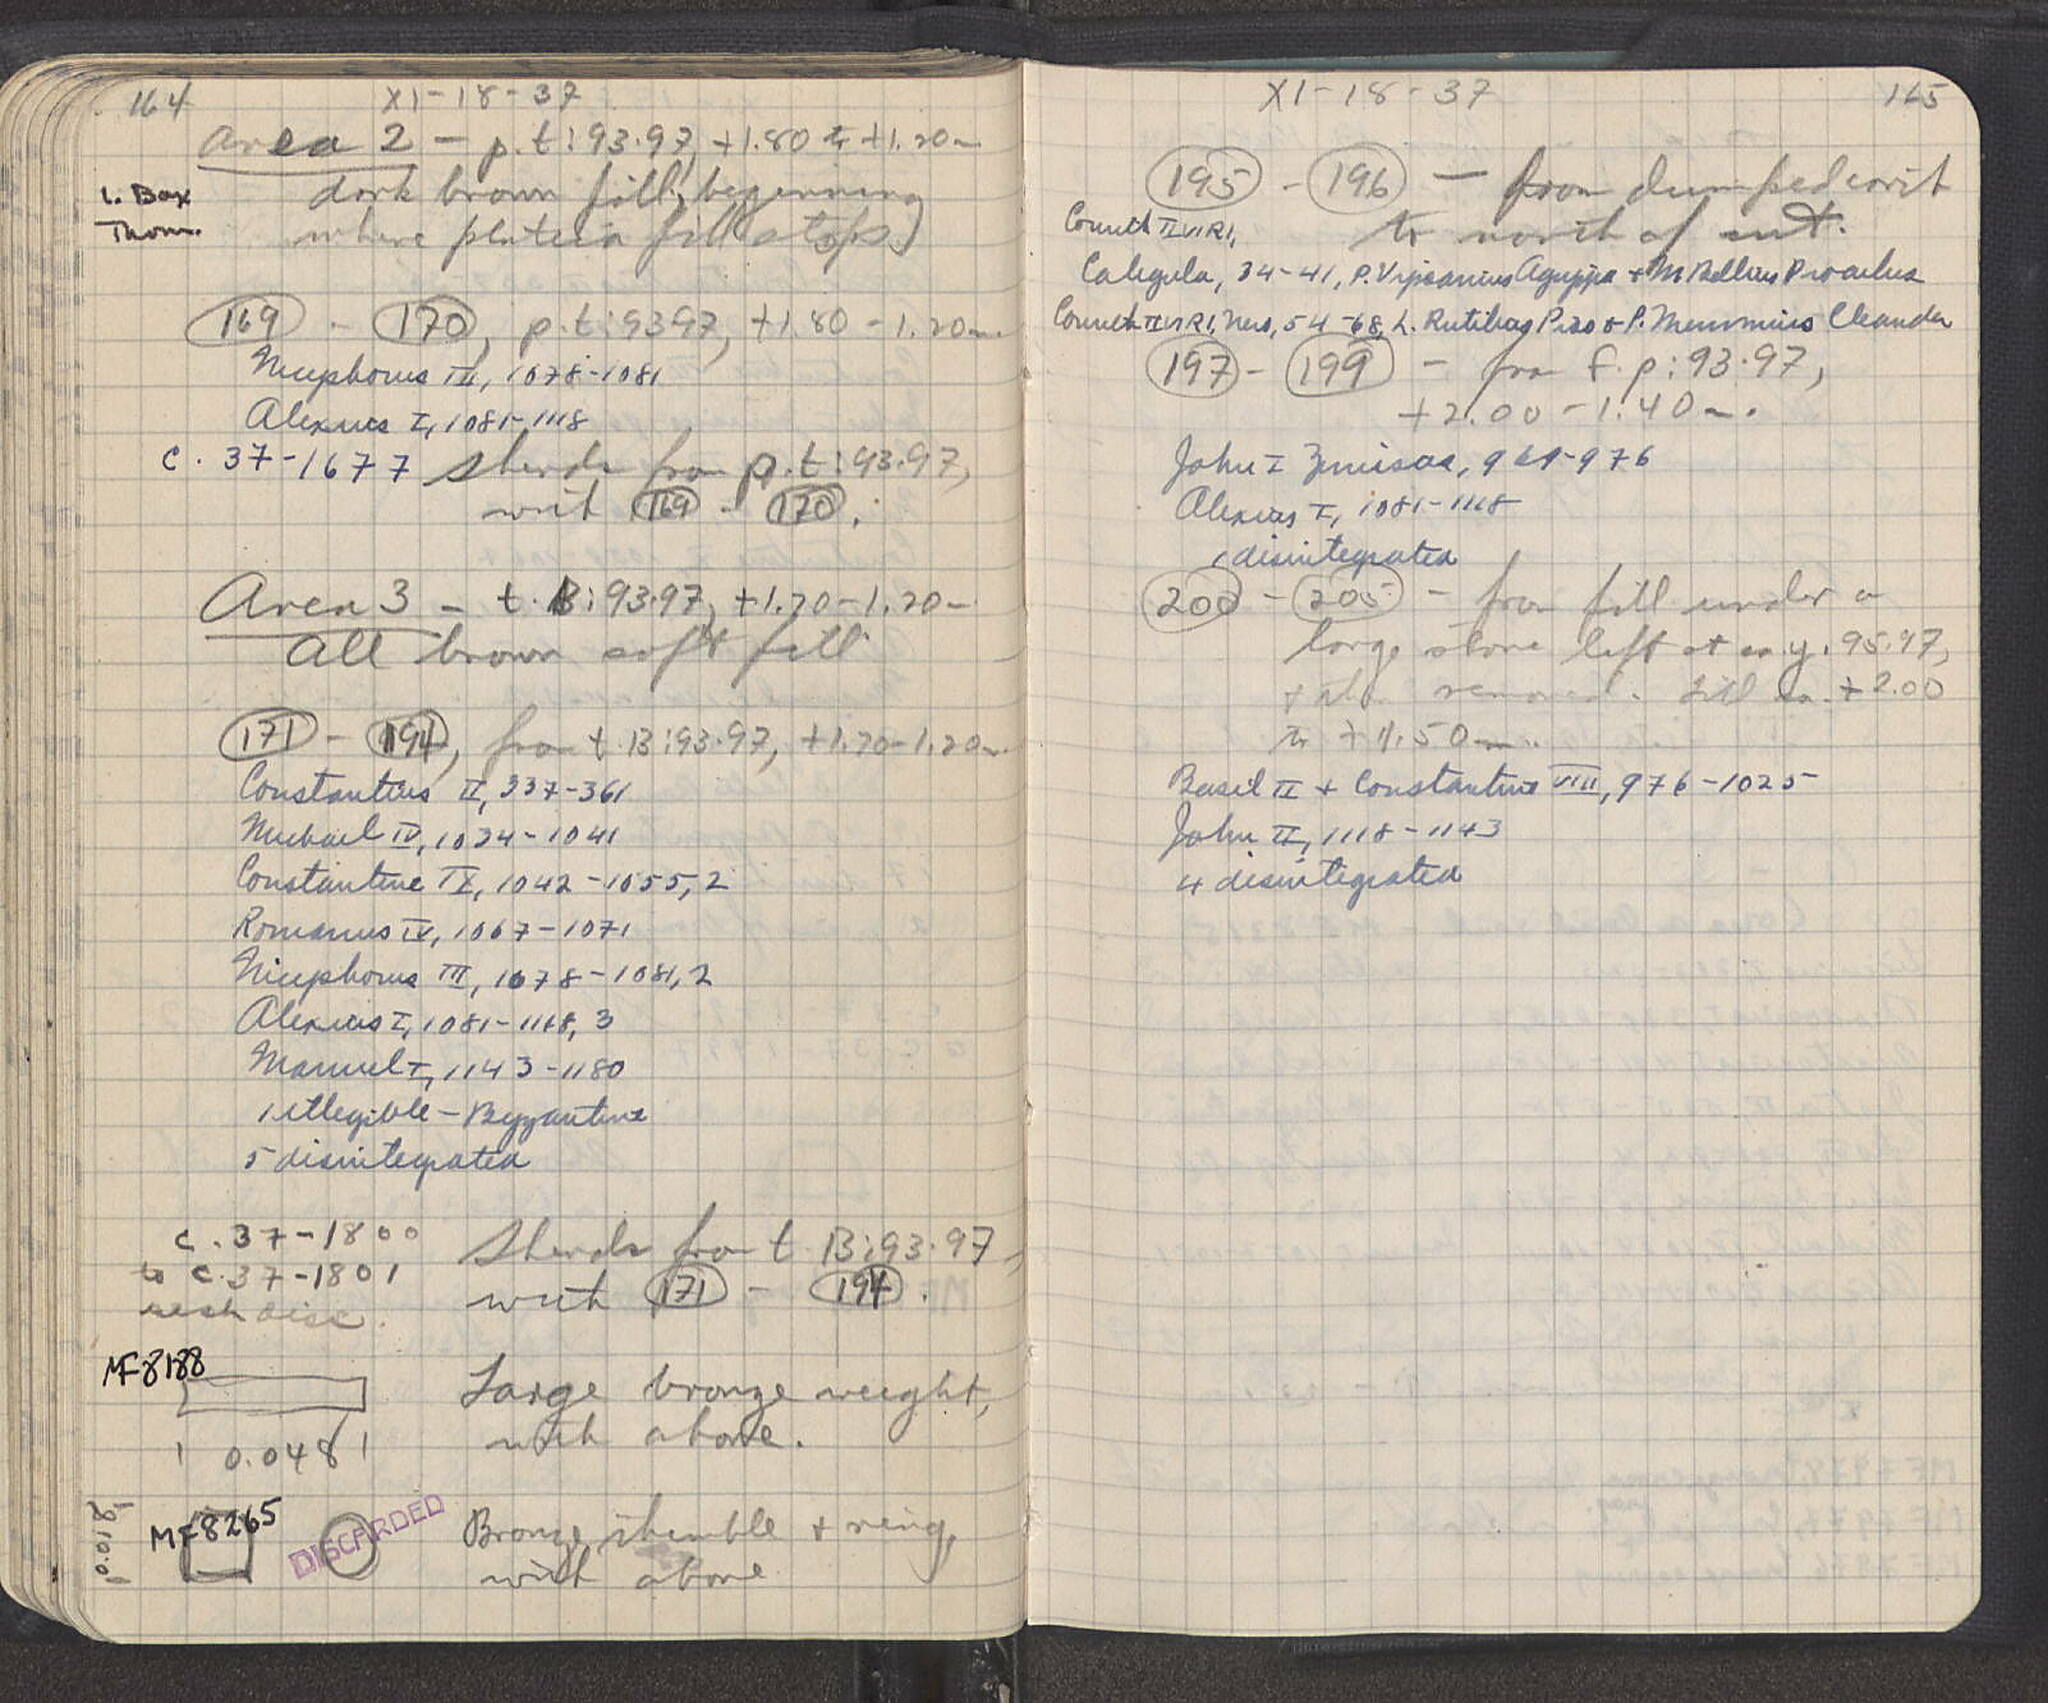 164 XI-18-37
Area 2 - p.t:93.97, +1.80 to +1.20m
1. Box dark brown fill, beginning
where plateia fill stops)
169 - 170, p.t:93.97, +1.80 - 1.20m.
Nicephorus III, 1078-1081
Alexius I, 1081-1118
C. 37-1677 Sherds from p.t:93.97,
with 169 - 170.
Area 3 - t.B:93.97, +1.70-1.20-
All brown soft fill
171 - 194, from t.B:93.97, +1.70-1.20m.
Constantius II, 337-361
Michael IV, 1034-1041
Constantine IX, 1042-1055, 2
Romanus IV, 1067-1071
Nicephorus III, 1078-1081, 2
Alexius I, 1081-1118, 3
Manuel I, 1143-1180
1 illegible - Byzantine
5 disintegrated
C. 37-1800 Sherds from t.B:93.97,
to C. 37-1801 with 171 - 194.
disc.
MF8188
Large bronze weight,
with above.
0.048
MF8265 DISCARDED Bronze thimble + ring,
with above
0.018
XI-18-37 165
195 - 196 - from dumped earth
to north of cut.
Corinth IIVIRI,
Caligula, 34-41, P. Vipsanius Agrippa + M. Bellius Proculus
Corinth IIVIRI, Nero, 54-68, L. Rutilius Piso & P. Memmius Cleander
197 - 199 - from f.p:93.97,
+2.00 - 1.40m.
John I Zimisces, 969-976
Alexius I, 1081-1118
1 disintegrated
200 - 205 - from fill under a
large stone left at ca. y. 95.97,
+ then removed. Fill ca. +2.00
to +1.50m.
Basil II + Constantine VIII, 976-1025
John II, 1118-1143
4 disintegrated